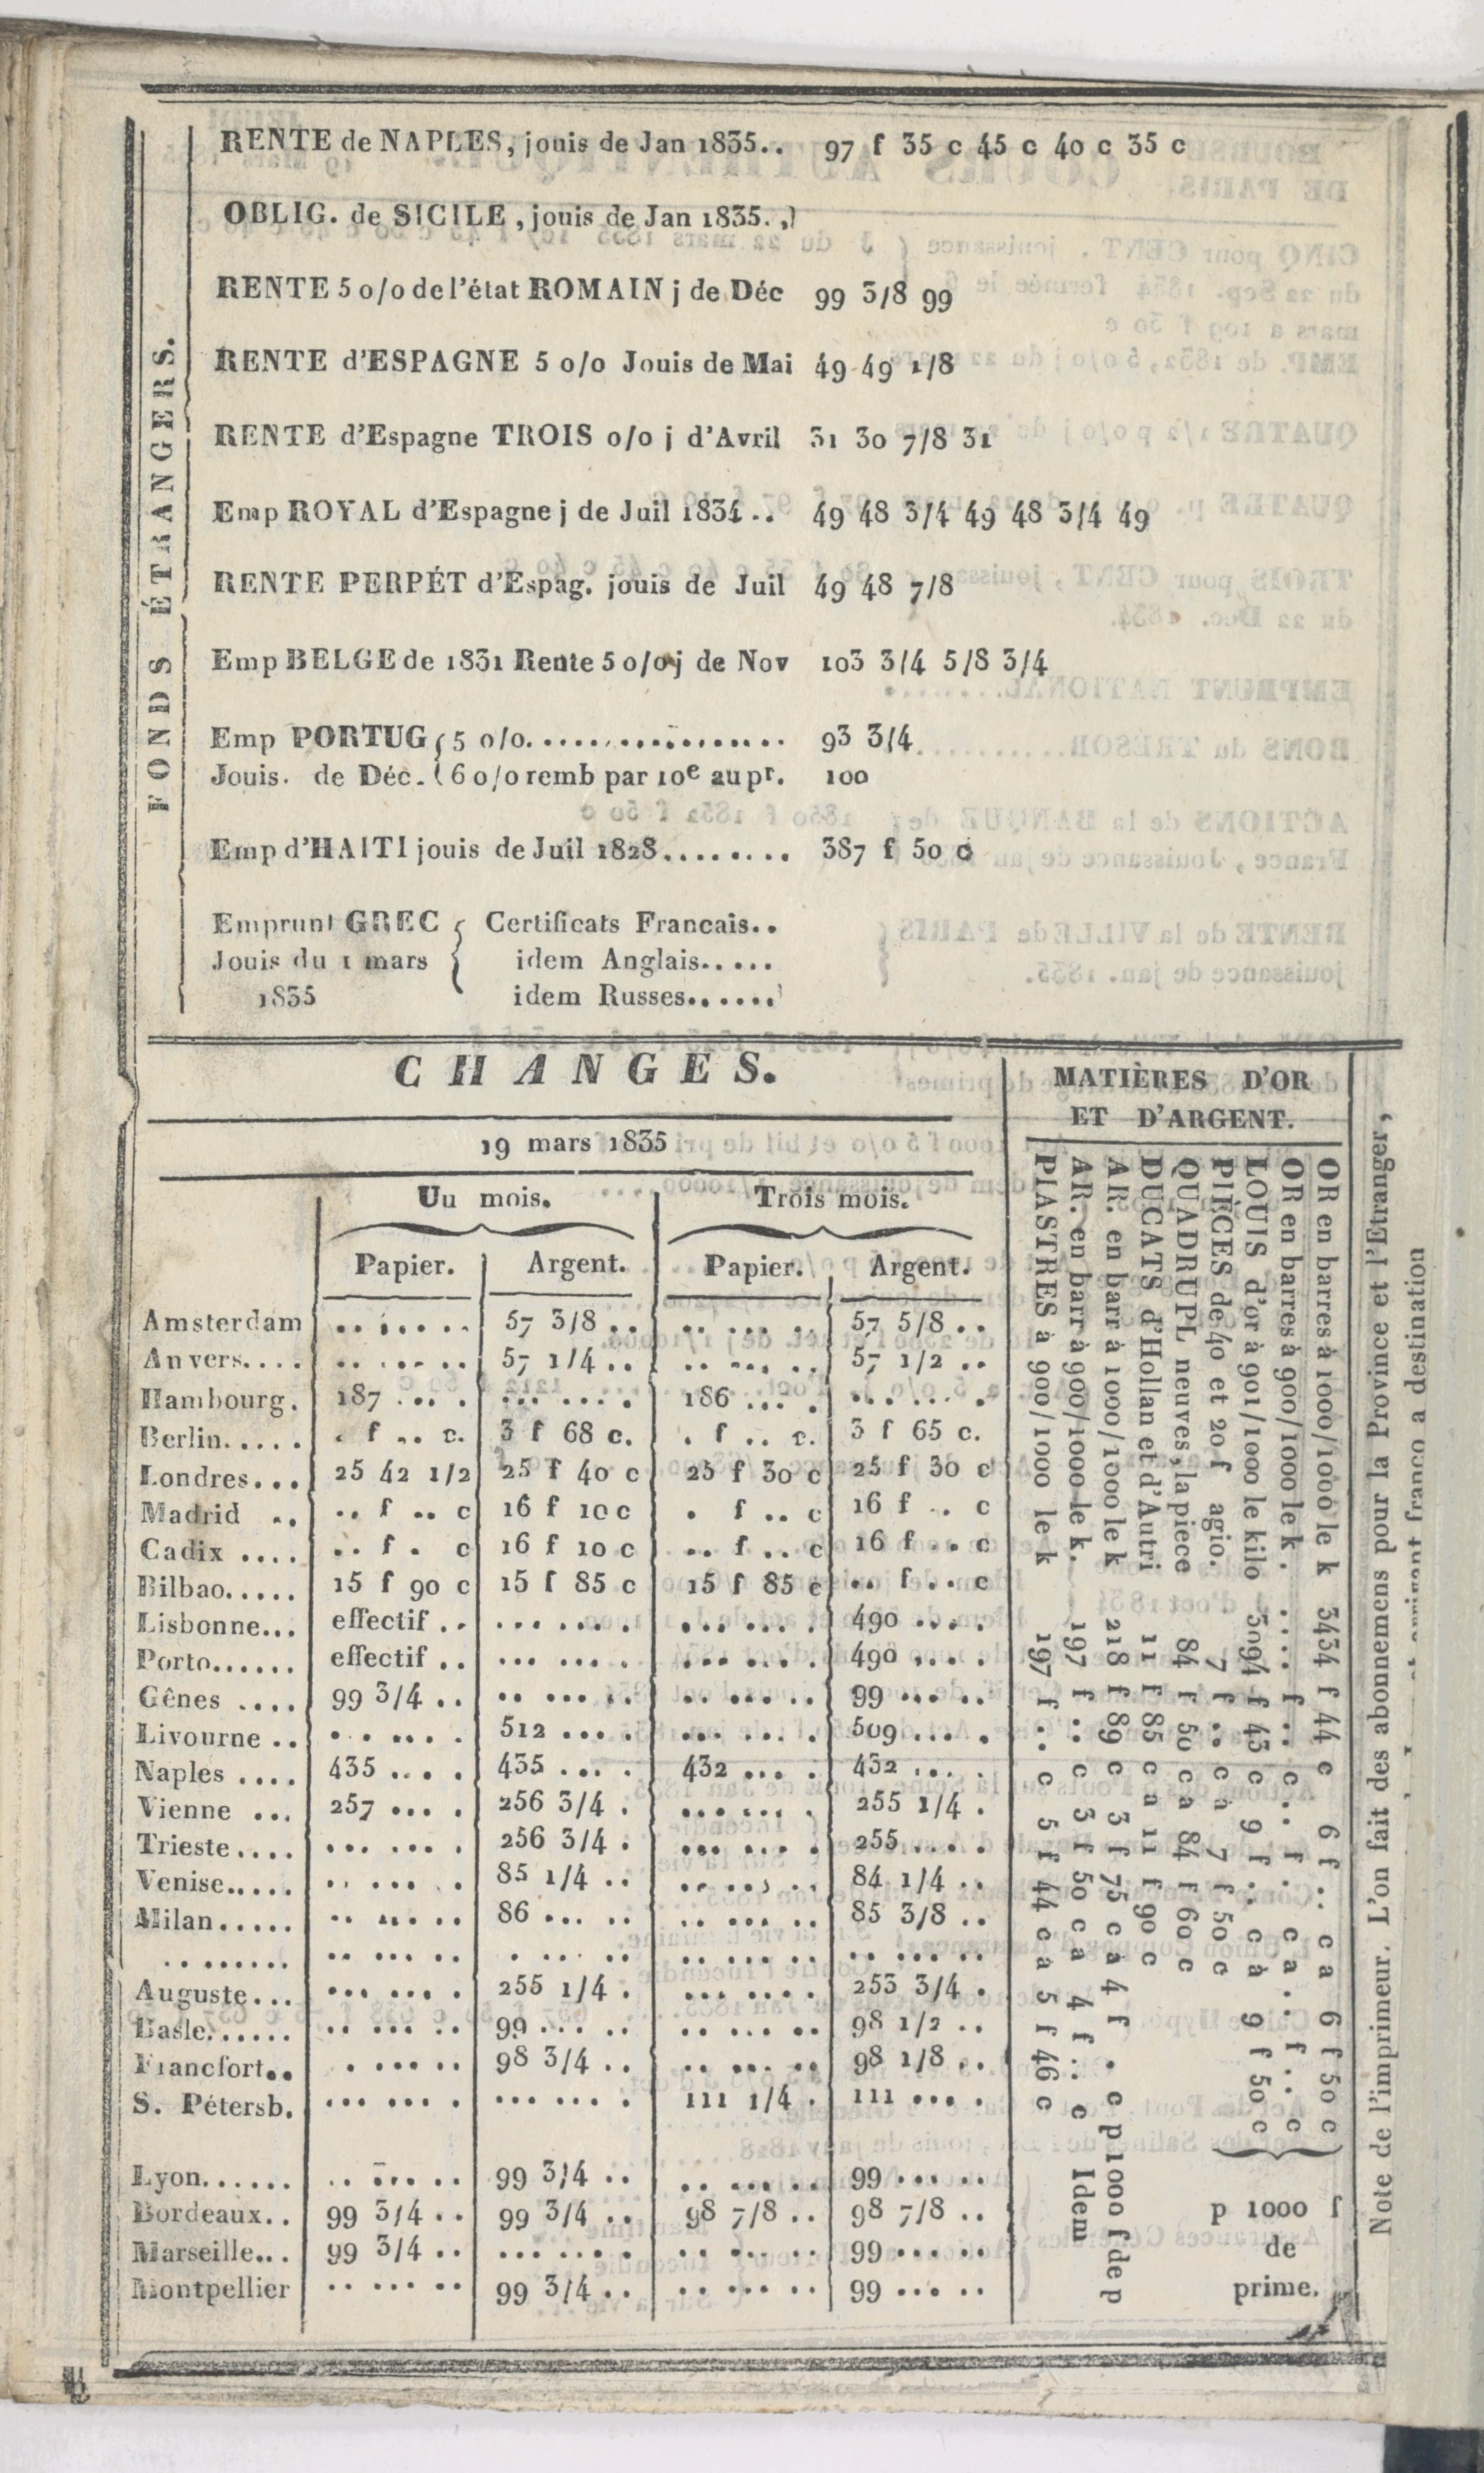 FONDS ÉTRANGERS.
RENTE de NAPLES, jouis de Jan 1835.. 97 f 35 c 45 c 40 c 35 c
OBLIG. de SICILE, jouis de Jan 1835.,
RENTE 5 0/0 de l'état ROMAIN j de Déc 99 3/8 99
RENTE d'ESPAGNE 5 0/0 Jouis de Mai 49 49 1/8
RENTE d'Espagne TROIS 0/0 j d'Avril 31 30 7/8 31
Emp ROYAL d'Espagne j de Juil 1834.. 49 48 3/4 49 48 3/4 49
RENTE PERPÉT d'Espag. jouis de Juil 49 48 7/8
Emp BELGE de 1831 Rente 5 0/0 j de Nov 103 3/4 5/8 3/4
Emp PORTUG { 5 0/0................... 93 3/4
Jouis. de Déc. { 6 0/0 remb par 10e au pr. 100
Emp d'HAITI jouis de Juil 1828........ 387 f 50 c
Emprunt GREC { Certificats Francais..
Jouis du 1 mars { idem Anglais.....
1835 idem Russes......
CHANGES.
19 mars 1835
Uu mois. Trois mois.
Papier. Argent. Papier. Argent.
Amsterdam .. ... .. 57 3/8 .. .. ... .. 57 5/8 ..
Anvers.... .. ... .. 57 1/4 .. .. ... .. 57 1/2 ..
Hambourg. 187 ... . ... ... . 186 ... . ... ... .
Berlin..... . f .. c. 3 f 68 c. . f .. c. 3 f 65 c.
Londres... 25 42 1/2 25 f 40 c 25 f 30 c 25 f 30 c
Madrid .. .. f .. c 16 f 10 c . f .. c 16 f .. c
Cadix .... .. f . c 16 f 10 c .. f .. c 16 f .. c
Bilbao..... 15 f 90 c 15 f 85 c 15 f 85 c .. f .. c
Lisbonne... effectif .. ... ... . ... ... . 490 ... .
Porto...... effectif .. ... ... . ... ... . 490 ... .
Gênes .... 99 3/4 .. .. ... .. .. ... .. 99 ... ..
Livourne .. . . ... . 512 ... . ... ... . 509 ... .
Naples .... 435 ... . 435 ... . 432 ... . 432 ... .
Vienne ... 257 ... . 256 3/4 . ... ... . 255 1/4 .
Trieste.... ... ... . 256 3/4 . ... ... . 255 ... .
Venise..... .. ... . 85 1/4 .. .. ... .. 84 1/4 ..
Milan..... .. ... .. 86 ... .. .. ... .. 85 3/8 ..
........ .. ... .. . ... .. .. ... .. .. ... ..
Auguste... ... ... . 255 1/4 . ... ... . 253 3/4 .
Basle...... .. ... .. 99 ... .. .. ... .. 98 1/2 ..
Francfort.. . ... .. 98 3/4 .. .. ... .. 98 1/8 ..
S. Pétersb. ... ... . ... ... . 111 1/4 . 111 ... .
Lyon...... .. ... .. 99 3/4 .. .. ... .. 99 ... ..
Bordeaux.. 99 3/4 .. 99 3/4 .. 98 7/8 .. 98 7/8 ..
Marseille... 99 3/4 .. ... ... . .. ... .. 99 ... ..
Montpellier .. ... .. 99 3/4 .. .. ... .. 99 ... ..
MATIÈRES D'OR
ET D'ARGENT.
OR en barres à 1000/1000 le k 3434 f 44 c 6 f .. c a 6 f 50 c
OR en barres à 900/1000 le k . .... f .. c . . f . . c a . . f . . c
LOUIS d'or à 901/1000 le kilo 3094 f 43 c 9 f .. c à 9 f 50 c
PIÈCES de 40 et 20 f agio. 7 f .. c à 7 f 50 c
QUADRUPL neuves, la piece 84 f 50 c a 84 f 60 c
DUCATS d'Hollan et d'Autri 11 f 85 c a 11 f 90 c
AR. en barr à 1000/1000 le k 218 f 89 c 3 f 75 c à 4 f . c p 1000 f de p
AR. en barr à 900/1000 le k. 197 f .. c 3 f 50 c a 4 f .. c Idem
PIASTRES à 900/1000 le k 197 f .. c 5 f 44 c à 5 f 46 c
p 1000 f
de
prime.
Note de l'imprimeur. L'on fait des abonnemens pour la Province et l'Etranger,
franco a destination